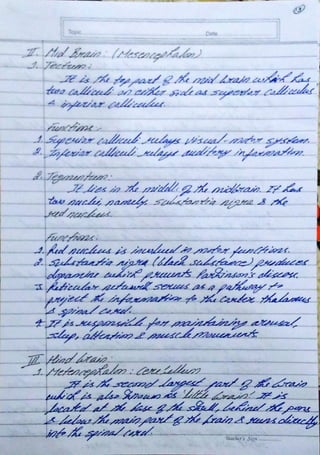 Topic Date
II. Mid Brain: (Mesencephalon)
1. Tectum:
It is the top part of the mid brain which has
two calliculi on either side as superior calliculus
& inferior calliculus.
Functions:
1. Superior calliculi relays visual-motor system.
2. Inferior calliculi relays auditory information.
2. Tegmentum:
It lies in the middle of the midbrain. It has
two nuclei namely substantia nigra & the
red nucleus.
Functions:
1. Red nucleus is involved in motor functions.
2. Substantia nigra (black substance) produces
dopamine which prevents Parkinson's disease.
3. Reticular network serves as a pathway to
project the information to the cortex thalamus
& spinal cord.
4. It is responsible for maintaining arousal,
sleep, attention & muscle movements.
III. Hind brain:
1. Metencephalon: Cerebellum
It is the second largest part of the brain
which is also known as 'little brain'. It is
located at the base of the skull, behind the pons
& below the main part of the brain & runs directly
into the spinal cord.
Teacher's Sign